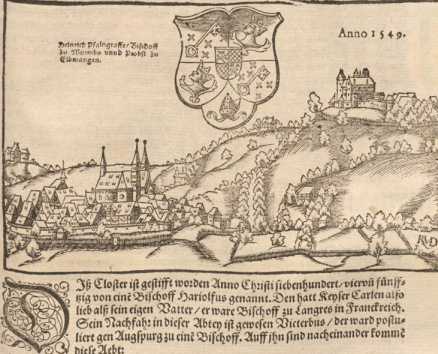 Heinrich Pfaltzgraffe / Bischoff
zu Wormbs vnnd Probst zu
Elwangen.
Anno 1549.
Diß Closter ist gestifft worden Anno Christi siebenhundert / vier vñ fünff-
tzig von einẽ Bischoff Hariolfus genannt. Den hatt Keyser Carlen also
lieb alß sein eigen Vatter / er ware Bischoff zu Langres in Franckreich.
Sein Nachfahr in dieser Abtey ist gewesen Victerbus / der ward postu-
liert gen Augspurg zu einẽ Bischoff. Auff ihn sind nacheinander kommẽ
diese Aebt: